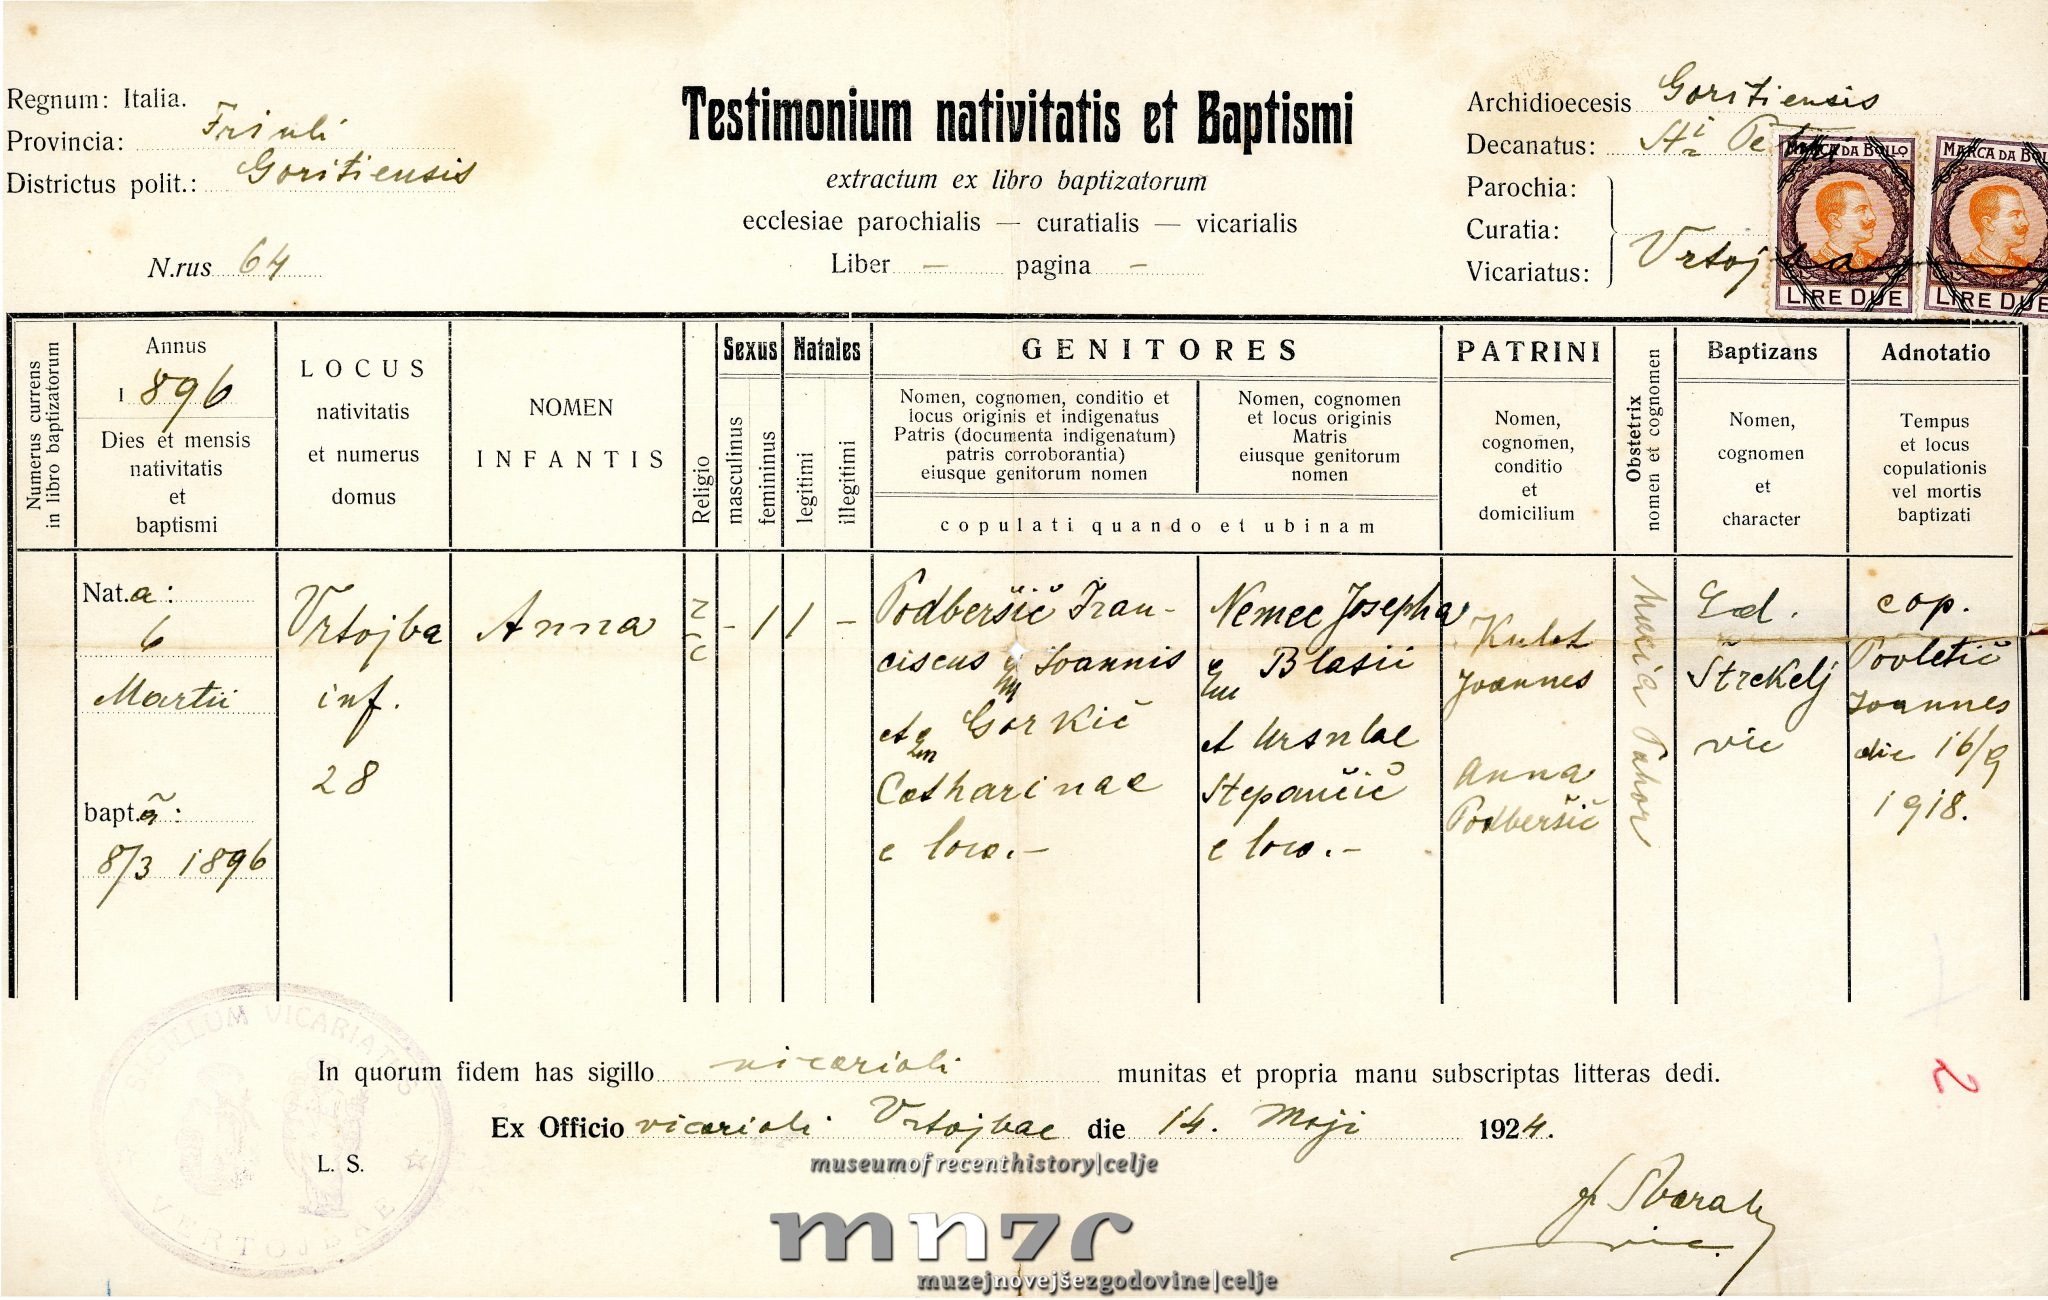 Regnum: Italia.
Provincia: Friuli
Districtus polit.: Goritiensis
N.rus 64
Testimonium nativitatis et Baptismi
extractum ex libro baptizatorum
ecclesiae parochialis — curatialis — vicarialis
Liber – pagina –
Archidioecesis Goritiensis
Decanatus: Sti Petri
Parochia:
Curatia:
Vicariatus:
Vrtojba
MARCA DA BOLLO
LIRE DUE
MARCA DA BOL
LIRE DUE
Numerus currens
in libro baptizatorum
Annus
1896
Dies et mensis
nativitatis
et
baptismi
LOCUS
nativitatis
et numerus
domus
NOMEN
INFANTIS
Religio
Sexus
masculinus
femininus
Natales
legitimi
illegitimi
GENITORES
Nomen, cognomen, conditio et
locus originis et indigenatus
Patris (documenta indigenatum)
patris corroborantia)
eiusque genitorum nomen
Nomen, cognomen
et locus originis
Matris
eiusque genitorum
nomen
copulati quando et ubinam
PATRINI
Nomen,
cognomen,
conditio
et
domicilium
Obstetrix
nomen et cognomen
Baptizans
Nomen,
cognomen
et
character
Adnotatio
Tempus
et locus
copulationis
vel mortis
baptizati
Nat.a:
6
Martii
bapt.a:
8/3 1896
Vrtojba
inf.
28
Anna
– 1 1 –
Podberšič Fran-
ciscus qm Joannis
et qm Gorkič
Catharinae
e loco.–
Nemec Josepha
qm Blasii
et Ursulae
Stepančič
e loco.–
Joannes
Anna
Podberšič
Pahor
Ed.
Štrekelj
vic
cop.
Povletič
Joannes
die 16/9
1918.
SIGILLUM VICARIATUS
VERTOJBAE
In quorum fidem has sigillo vicariali munitas et propria manu subscriptas litteras dedi.
Ex Officio vicariali Vrtojbae die 14. Maji 1924.
L. S.
vic.
2
museumofrecenthistory|celje
mnzc
muzejnovejšezgodovine|celje